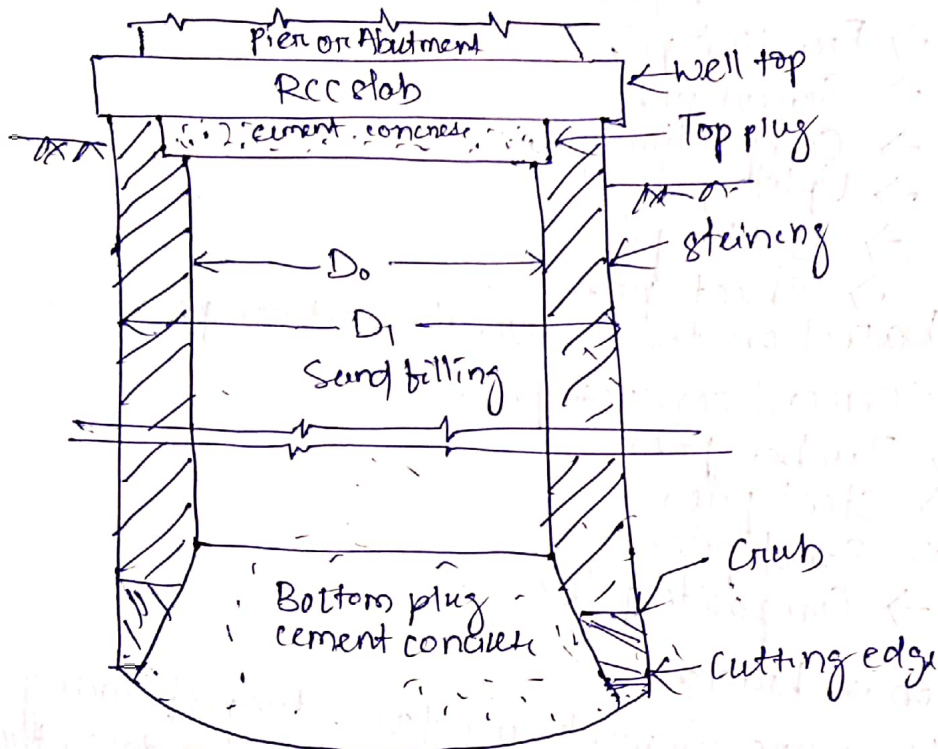 Pier or Abutment
RCC slab
Well top
cement concrese
Top plug
steineng
D₀
D₁
Sand filling
Crub
Bottom plug
cement concrese
Cutting edge